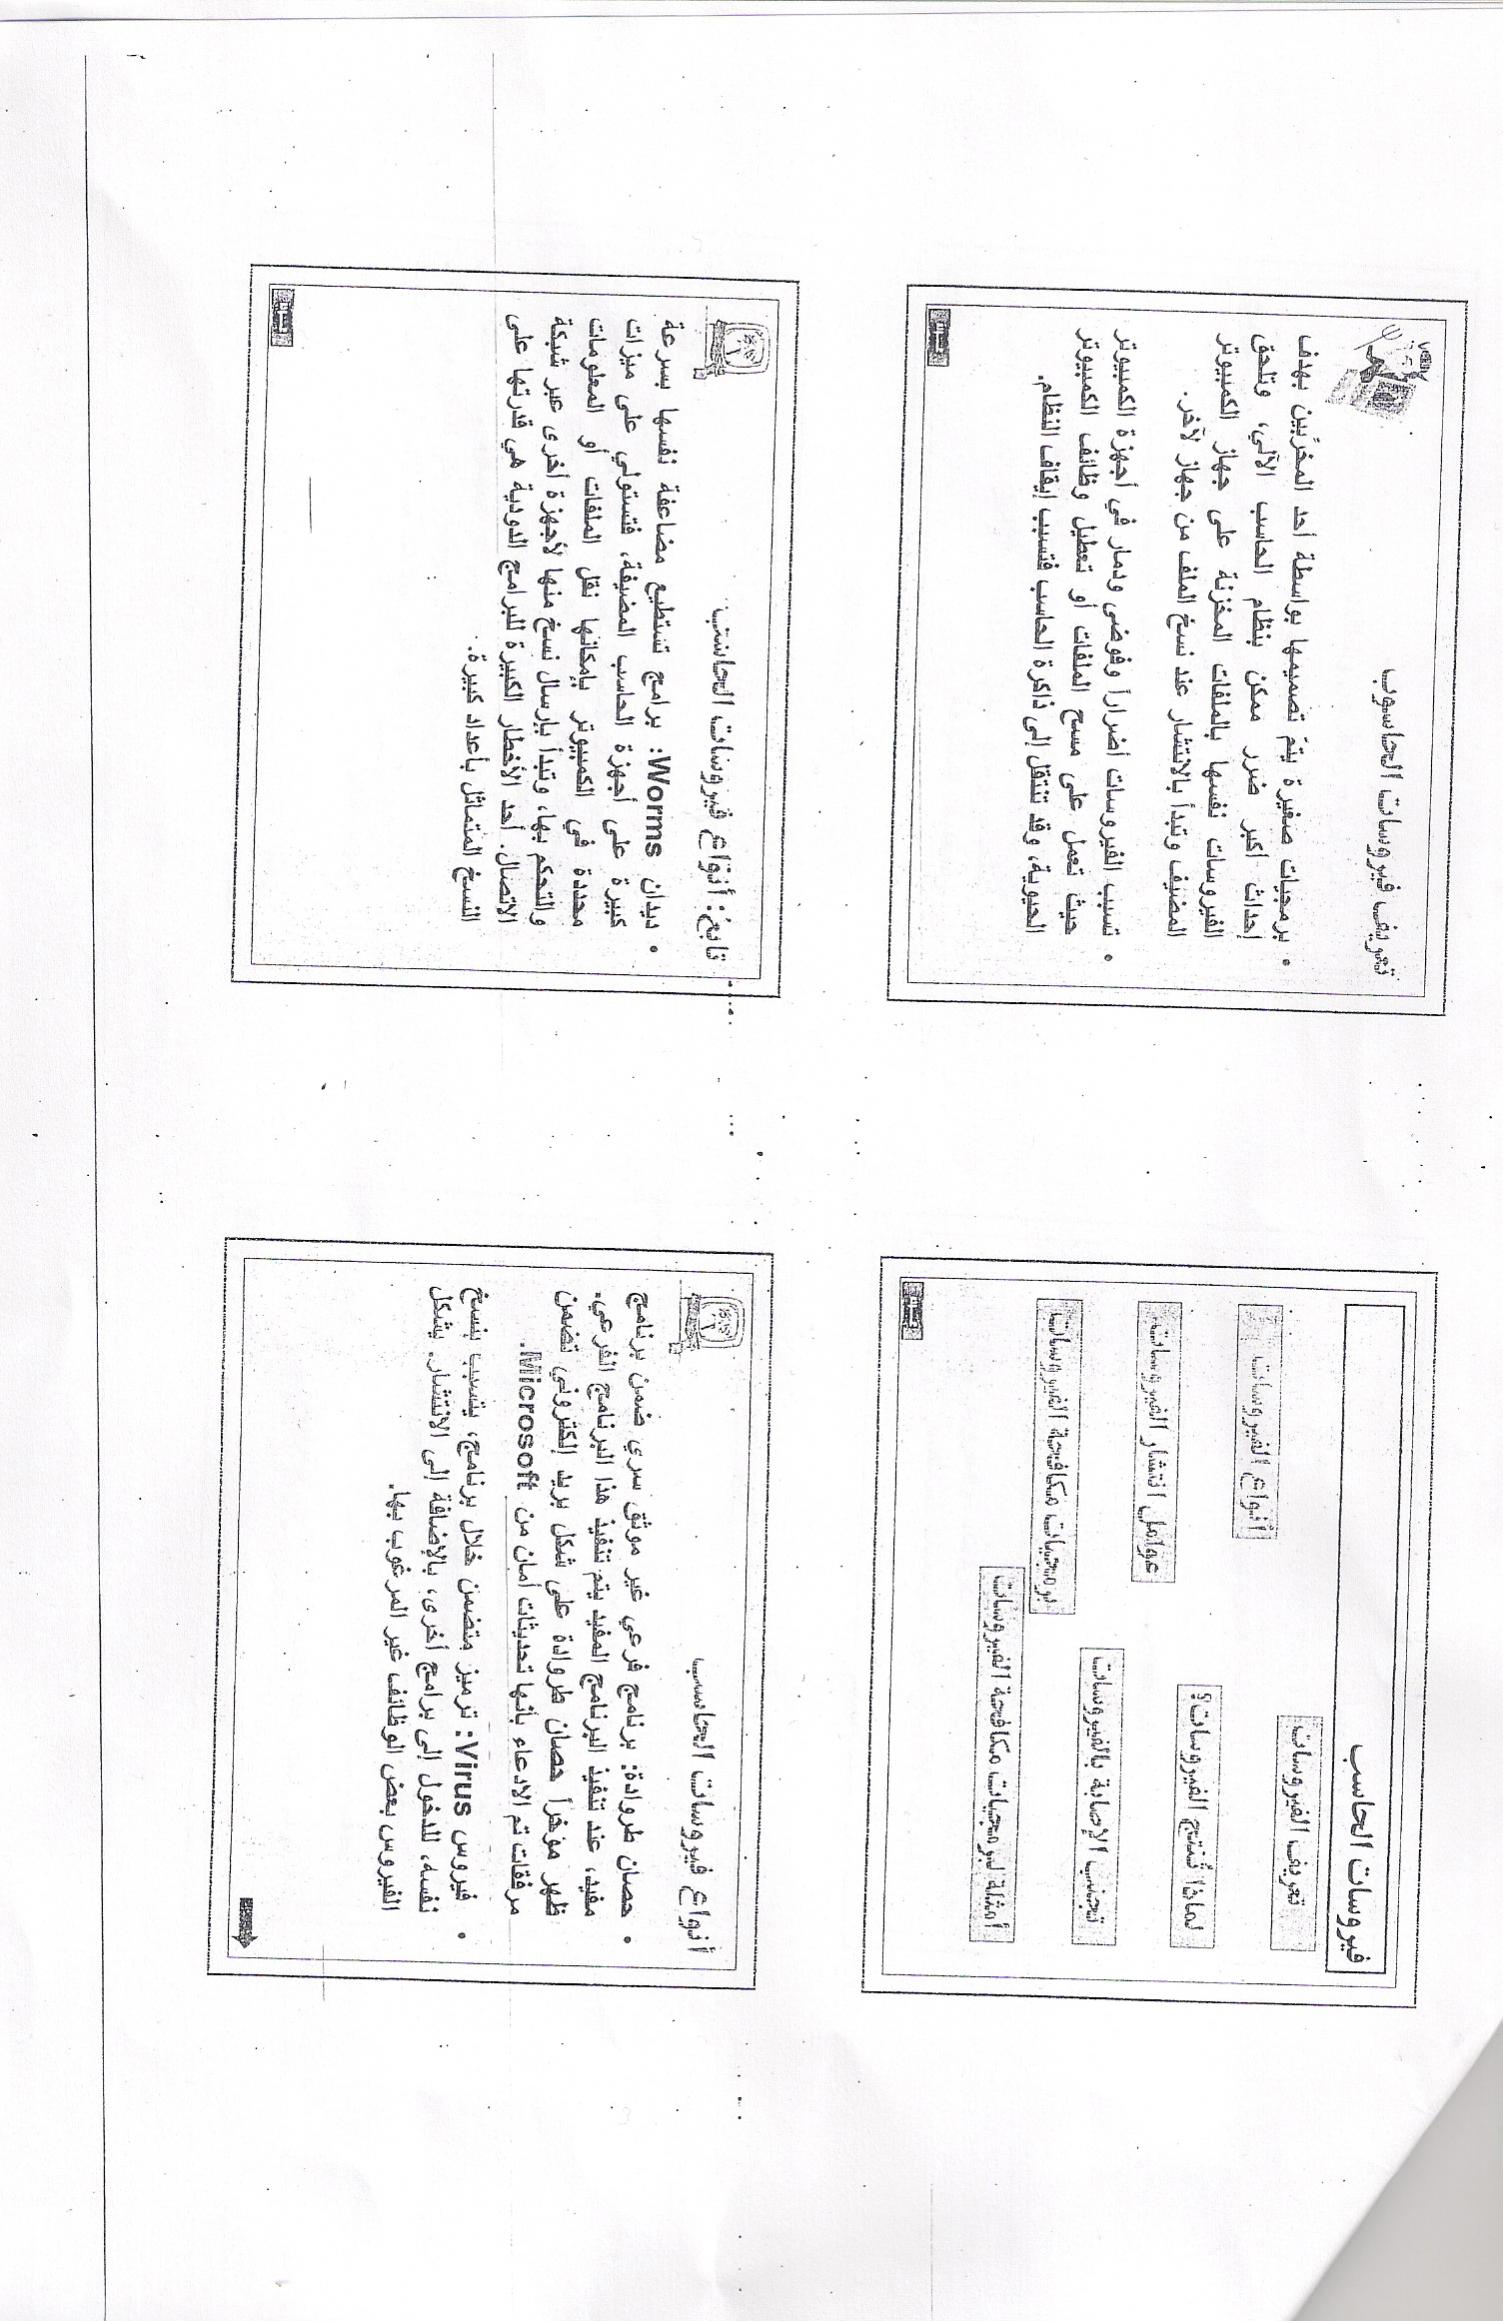 فيروسات الحاسب
تعريف الفيروسات
أنواع الفيروسات
لماذا تُنتج الفيروسات؟
عوامل انتشار الفيروسات
تجنب الإصابة بالفيروسات
برمجيات مكافحة الفيروسات
أمثلة لبرمجيات مكافحة الفيروسات
تعريف فيروسات الحاسوب
• برمجيات صغيرة يتمّ تصميمها بواسطة أحد المخرّبين بهدف
إحداث أكبر ضرر ممكن بنظام الحاسب الآلي، وتلحق
الفيروسات نفسها بالملفات المخزنة على جهاز الكمبيوتر
المضيف وتبدأ بالانتشار عند نسخ الملف من جهاز لآخر.
• تسبب الفيروسات أضراراً وفوضى ودمار في أجهزة الكمبيوتر
حيث تعمل على مسح الملفات أو تعطيل وظائف الكمبيوتر
الحيوية، وقد تنتقل إلى ذاكرة الحاسب فتسبب إيقاف النظام.
أنواع فيروسات الحاسب
• حصان طروادة: برنامج فرعي غير موثق سري ضمن برنامج
مفيد، عند تنفيذ البرنامج المفيد يتم تنفيذ هذا البرنامج الفرعي.
ظهر مؤخراً حصان طروادة على شكل بريد إلكتروني تضمن
مرفقات تم الادعاء بأنها تحديثات أمان من Microsoft.
• فيروس Virus: ترميز متضمن خلال برنامج، يتسبب بنسخ
نفسه، للدخول إلى برامج أخرى، بالإضافة إلى الانتشار. يشكل
الفيروس بعض الوظائف غير المرغوب بها.
تابع: أنواع فيروسات الحاسب
• ديدان Worms: برامج تستطيع مضاعفة نفسها بسرعة
كبيرة على أجهزة الحاسب المضيفة، فتستولي على ميزات
محددة في الكمبيوتر بإمكانها نقل الملفات أو المعلومات
والتحكم بها، وتبدأ بإرسال نسخ منها لأجهزة أخرى عبر شبكة
الاتصال. أحد الأخطار الكبيرة للبرامج الدودية هي قدرتها على
النسخ المتماثل بأعداد كبيرة.